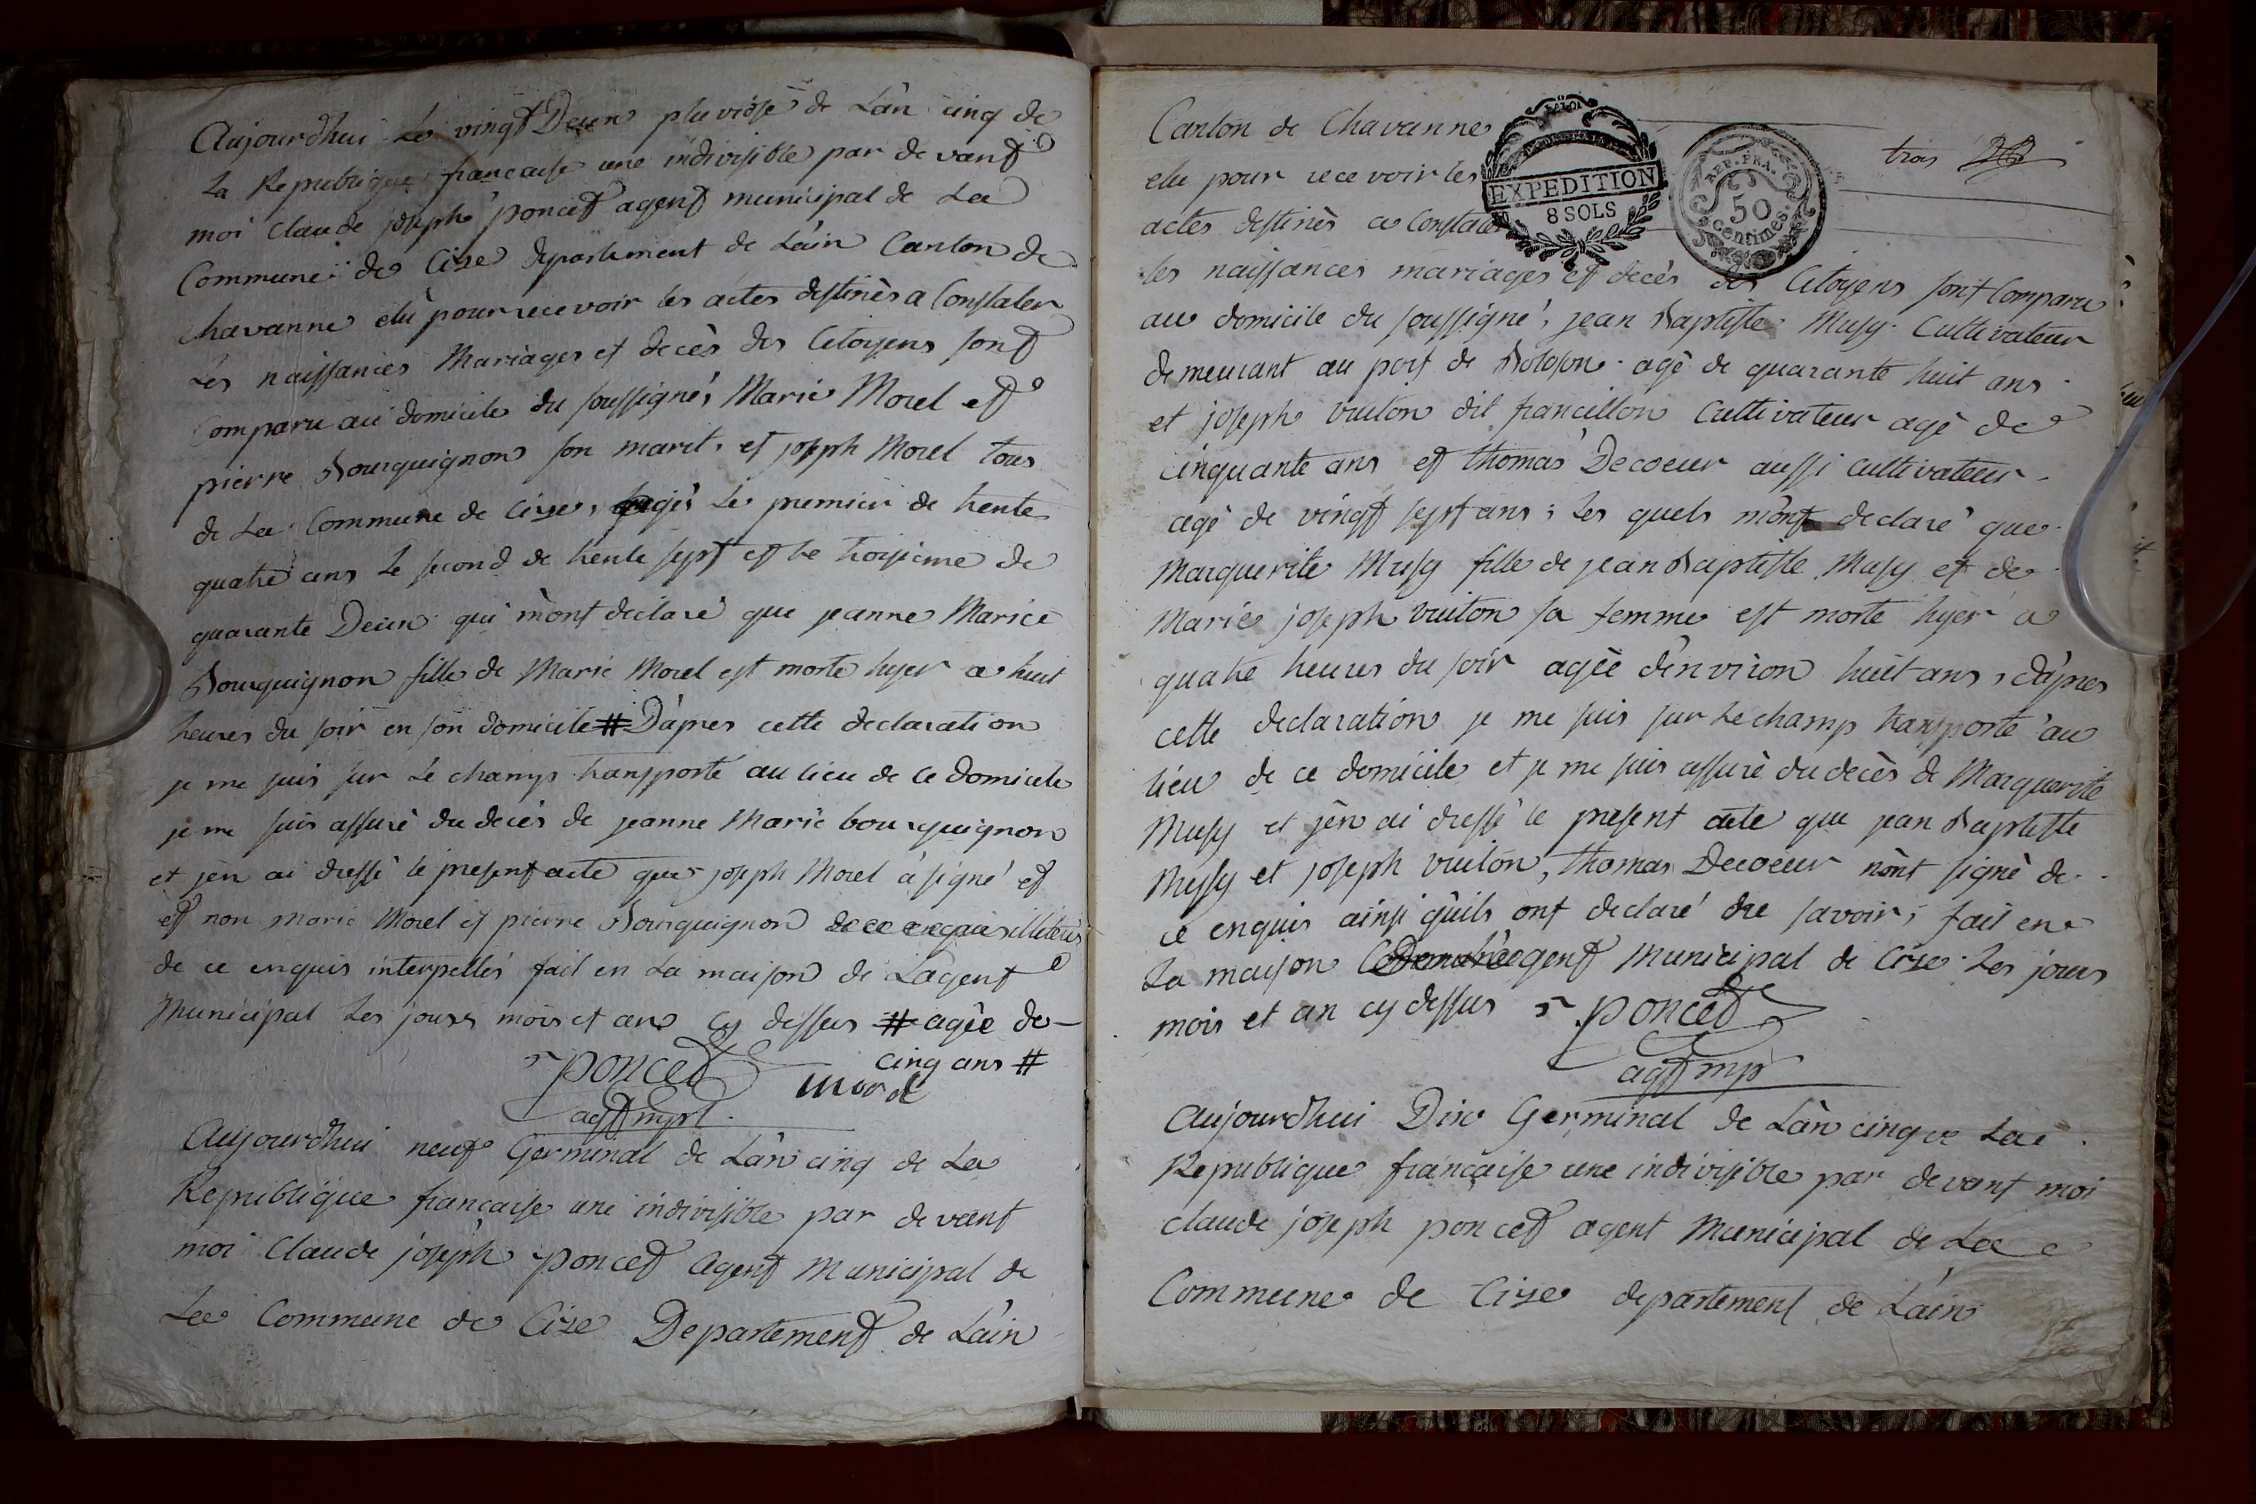 Aujourdhui Le vingt Deux pluviôse de Làn cinq de
La Republique francaise une indivisible par devant
moi Claude joseph poncet agent municipal de La
Commune de Cize departement de Làin Canton de
chavanne elu pour recevoir les actes destinès a Constater
Les naissances Mariages et decès des Citoyens sont
Comparu au domicile du soussigné, Marie Morel et
pierre Bourguignon son marit, et joseph Morel tous
de La Commune de Cize, agés Le premier de trente
quatre ans Le second de trente sept et Le troisieme de
quarante Deux qui mònt declaré que jeanne Marie
Bourguignon fille de Marie Morel est morte hyer a huit
heures du soir en son domicile # Dàpres cette declaration
je me suis sur Le champ transporté au lieu de ce domicile
je me suis assuré du decès de jeanne Marie bourguignon
et jèn ai dressé le present acte que joseph Morel à signé et
et non marie Morel et pierre Bourguignon illiteres
de ce enquis interpellés fait en La maison de Làgent
Municipal Les jours mois et an cy dessus # agèe de
cinq ans #
poncet morel
agt mpl.
Aujourdhui neuf Germinal de Làn cinq de La
Republique francaise une indivisible par devant
moi Claude joseph poncet Agent Municipal de
La Commune de Cize Departement de Làin
trois
Canton de Chavanne
elu pour recevoir les
actes destinès a Constater
EXPEDITION
8 SOLS
REP. FRA.
50
centimes
les naissances mariages et decès des Citoyens sont Comparu
au domicile du soussigné, jean Baptiste Musy Cultivateur
demeurant au port de Boloson agé de quarante huit ans
et joseph vuiton dit francillon Cultivateur agè de
cinquante ans et thomas Decoeur aussi cultivateur
agé de vingt sept ans; Les quels mònt declaré que
Marguerite Musy fille de jean Baptiste Musy et de
Marie joseph vuiton sa femme est morte hyer a
quatre heures du soir agèe dènviron huit ans, dàpres
cette declaration je me suis sur Le champ transporté au
lieu de ce domicile et je me suis assuré du decès de Marguerite
Musy et jèn ai dressé le present acte que jean Baptiste
Mysy et joseph vuiton, thomas Decoeur nònt signè de
ce enquis ainsi qùils ont declaré ne savoir; fait en
La maison agent Municipal de Cize Les jours
mois et an cy dessus poncet
agt mp
Aujourdhui Dix Germinal de Làn cinq La
Republique francaise une indivisible par devant moi
claude joseph poncet agent Municipal de La
Commune de Cize departement de Làin